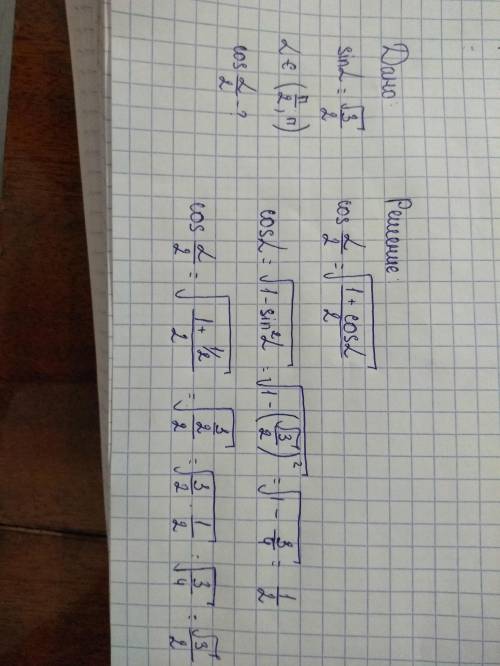 Дано:
sinα = √3/2
α ∈ (π/2, π)
cos α/2 - ?
Решение:
cos α/2 = √((1 + cosα)/2)
cosα = √(1 - sin²α) = √(1 - (√3/2)²) = √(1 - 3/4) = 1/2
cos α/2 = √((1 + 1/2)/2) = √((3/2)/2) = √(3/2 · 1/2) = √(3/4) = √3/2